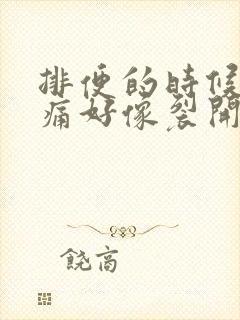 排便的時候
痛好像裂開
饒高